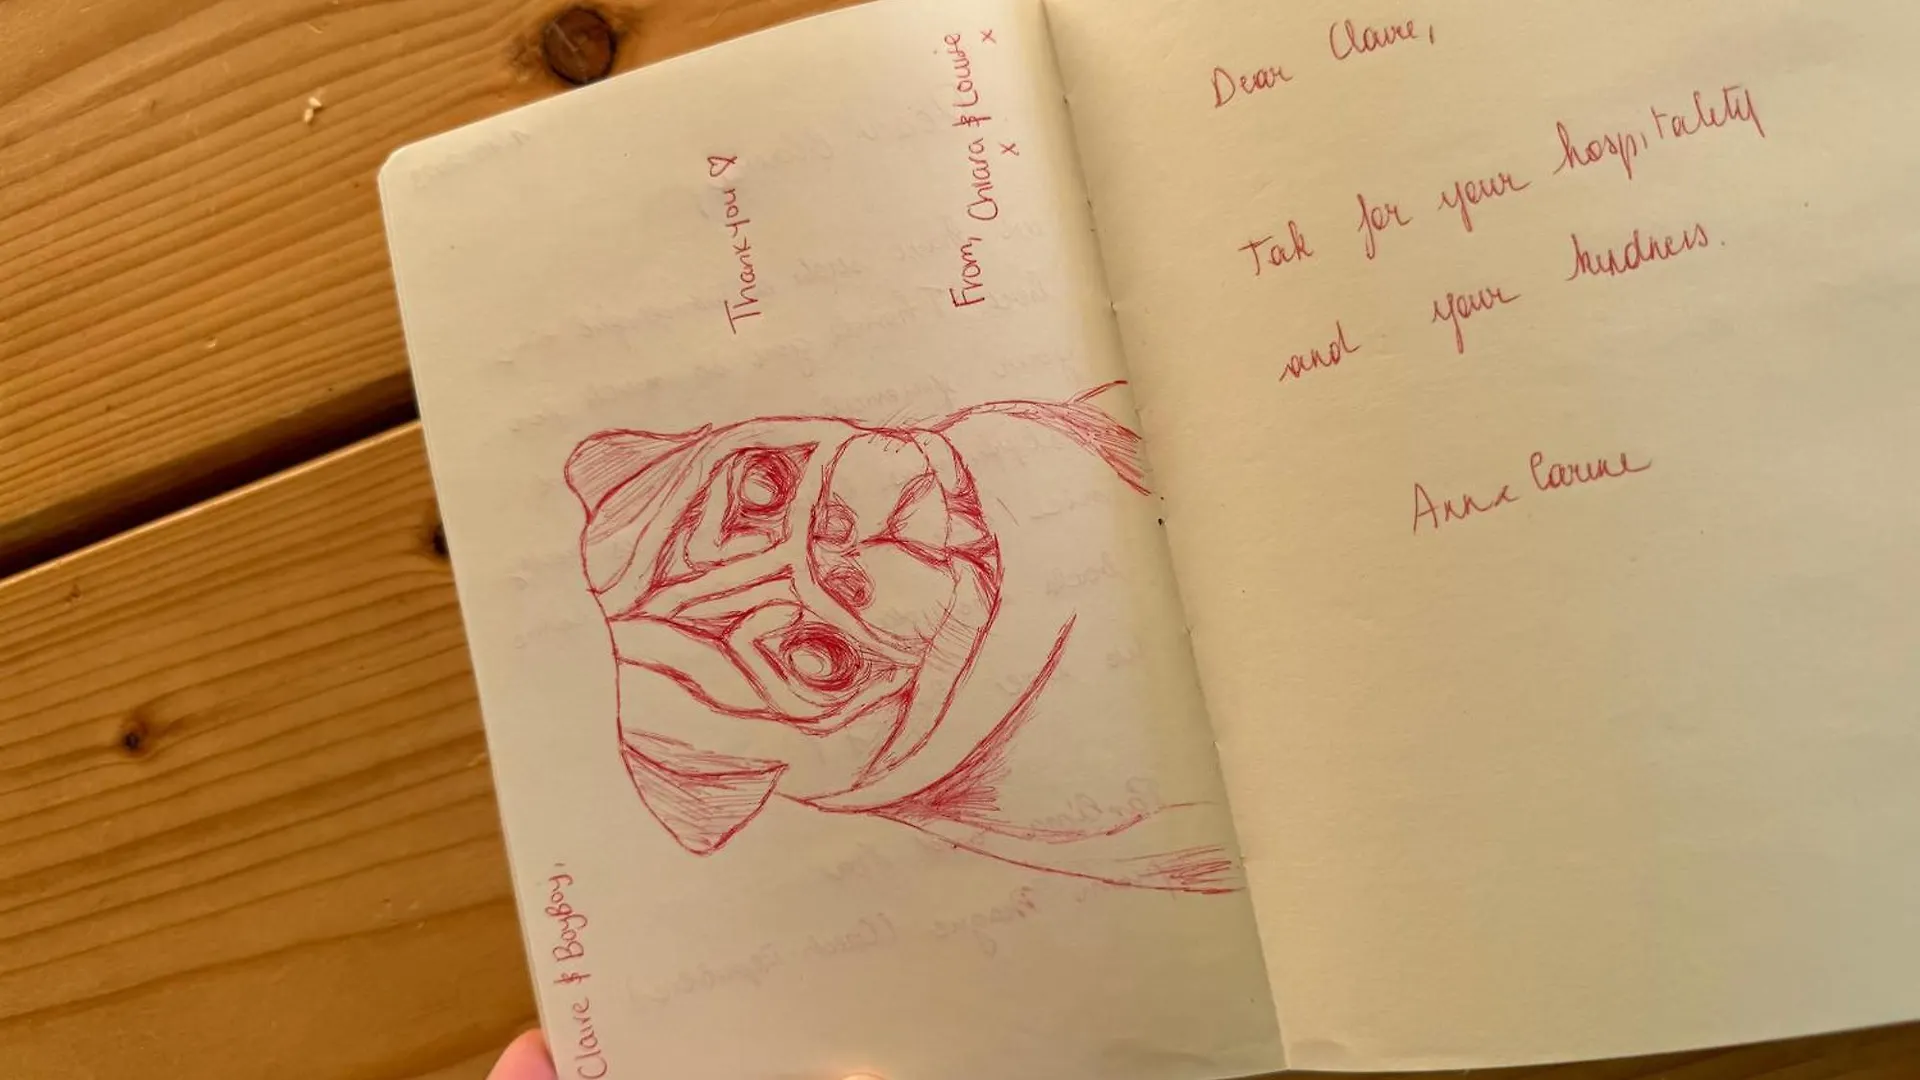 Claire & Boyboy,
Thank you ♡
From, Chiara & Louise
x x
Dear Claire,
Tak for your hospitality
and your kindness.
Anna Carine